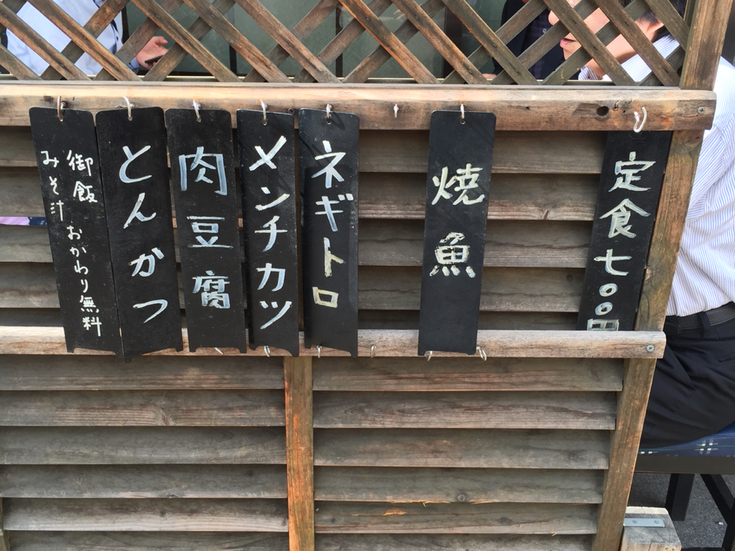 定食七〇〇円
焼魚
ネギトロ
メンチカツ
肉豆腐
とんかつ
御飯
みそ汁おかわり無料